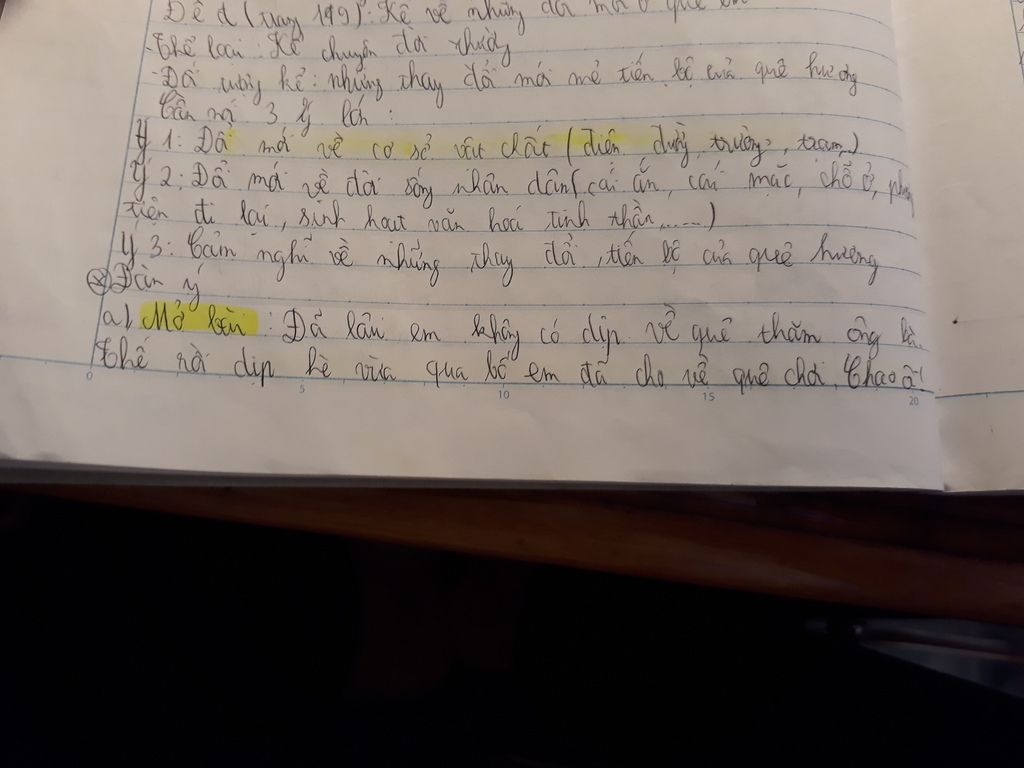 Đề d (trang 119): Kể về những đổi mới ở quê em
- Thể loại: Kể chuyện đời thường
- Đối tượng kể: những thay đổi mới mẻ tiến bộ của quê hương
Cần nói 3 ý lớn:
Ý 1: Đổi mới về cơ sở vật chất (điện đường, trường, trạm,)
Ý 2: Đổi mới về đời sống nhân dân (cái ăn, cái mặc, chỗ ở, phương
tiện đi lại, sinh hoạt văn hoá tinh thần,.....)
Ý 3: Cảm nghĩ về những thay đổi, tiến bộ của quê hương
Dàn ý
a) Mở bài: Đã lâu em không có dịp về quê thăm ông bà.
Thế rồi dịp hè vừa qua bố em đã cho về quê chơi. Chao ôi!
0 5 10 15 20